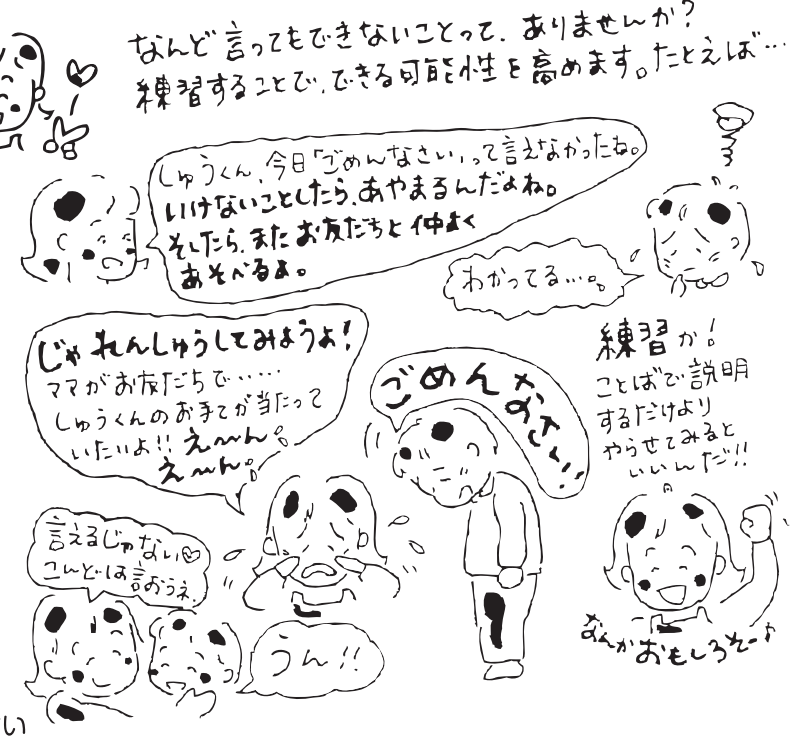 なんど言ってもできないことって、ありませんか?
練習することで、できる可能性を高めます。たとえば…
しゅうくん、今日「ごめんなさい」って言えなかったね。
いけないことしたら、あやまるんだよね。
そしたら、またお友だちと仲よく
あそべるよ。
わかってる…。
じゃ れんしゅうしてみようよ!
ママがお友だちで……
しゅうくんのお手てが当たって
いたいよ!! え〜ん。
え〜ん。
ごめんなさい!!
練習か!
ことばで説明
するだけより
やらせてみると
いいんだ!!
言えるじゃない♡
こんどは言おうネ.
うん!!
なんかおもしろそー♪
い